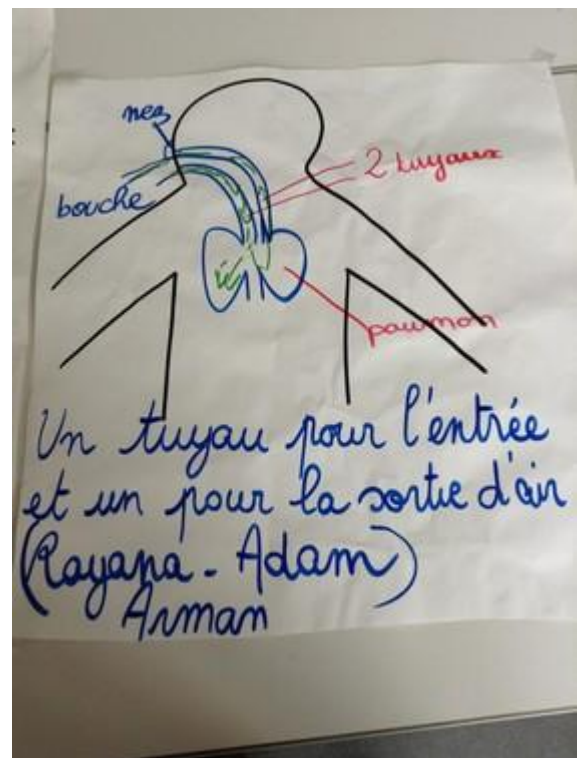 nez
bouche
2 tuyaux
paumon
Un tuyau pour l'entrée
et un pour la sortie d'air
(Rayana - Adam)
Arman